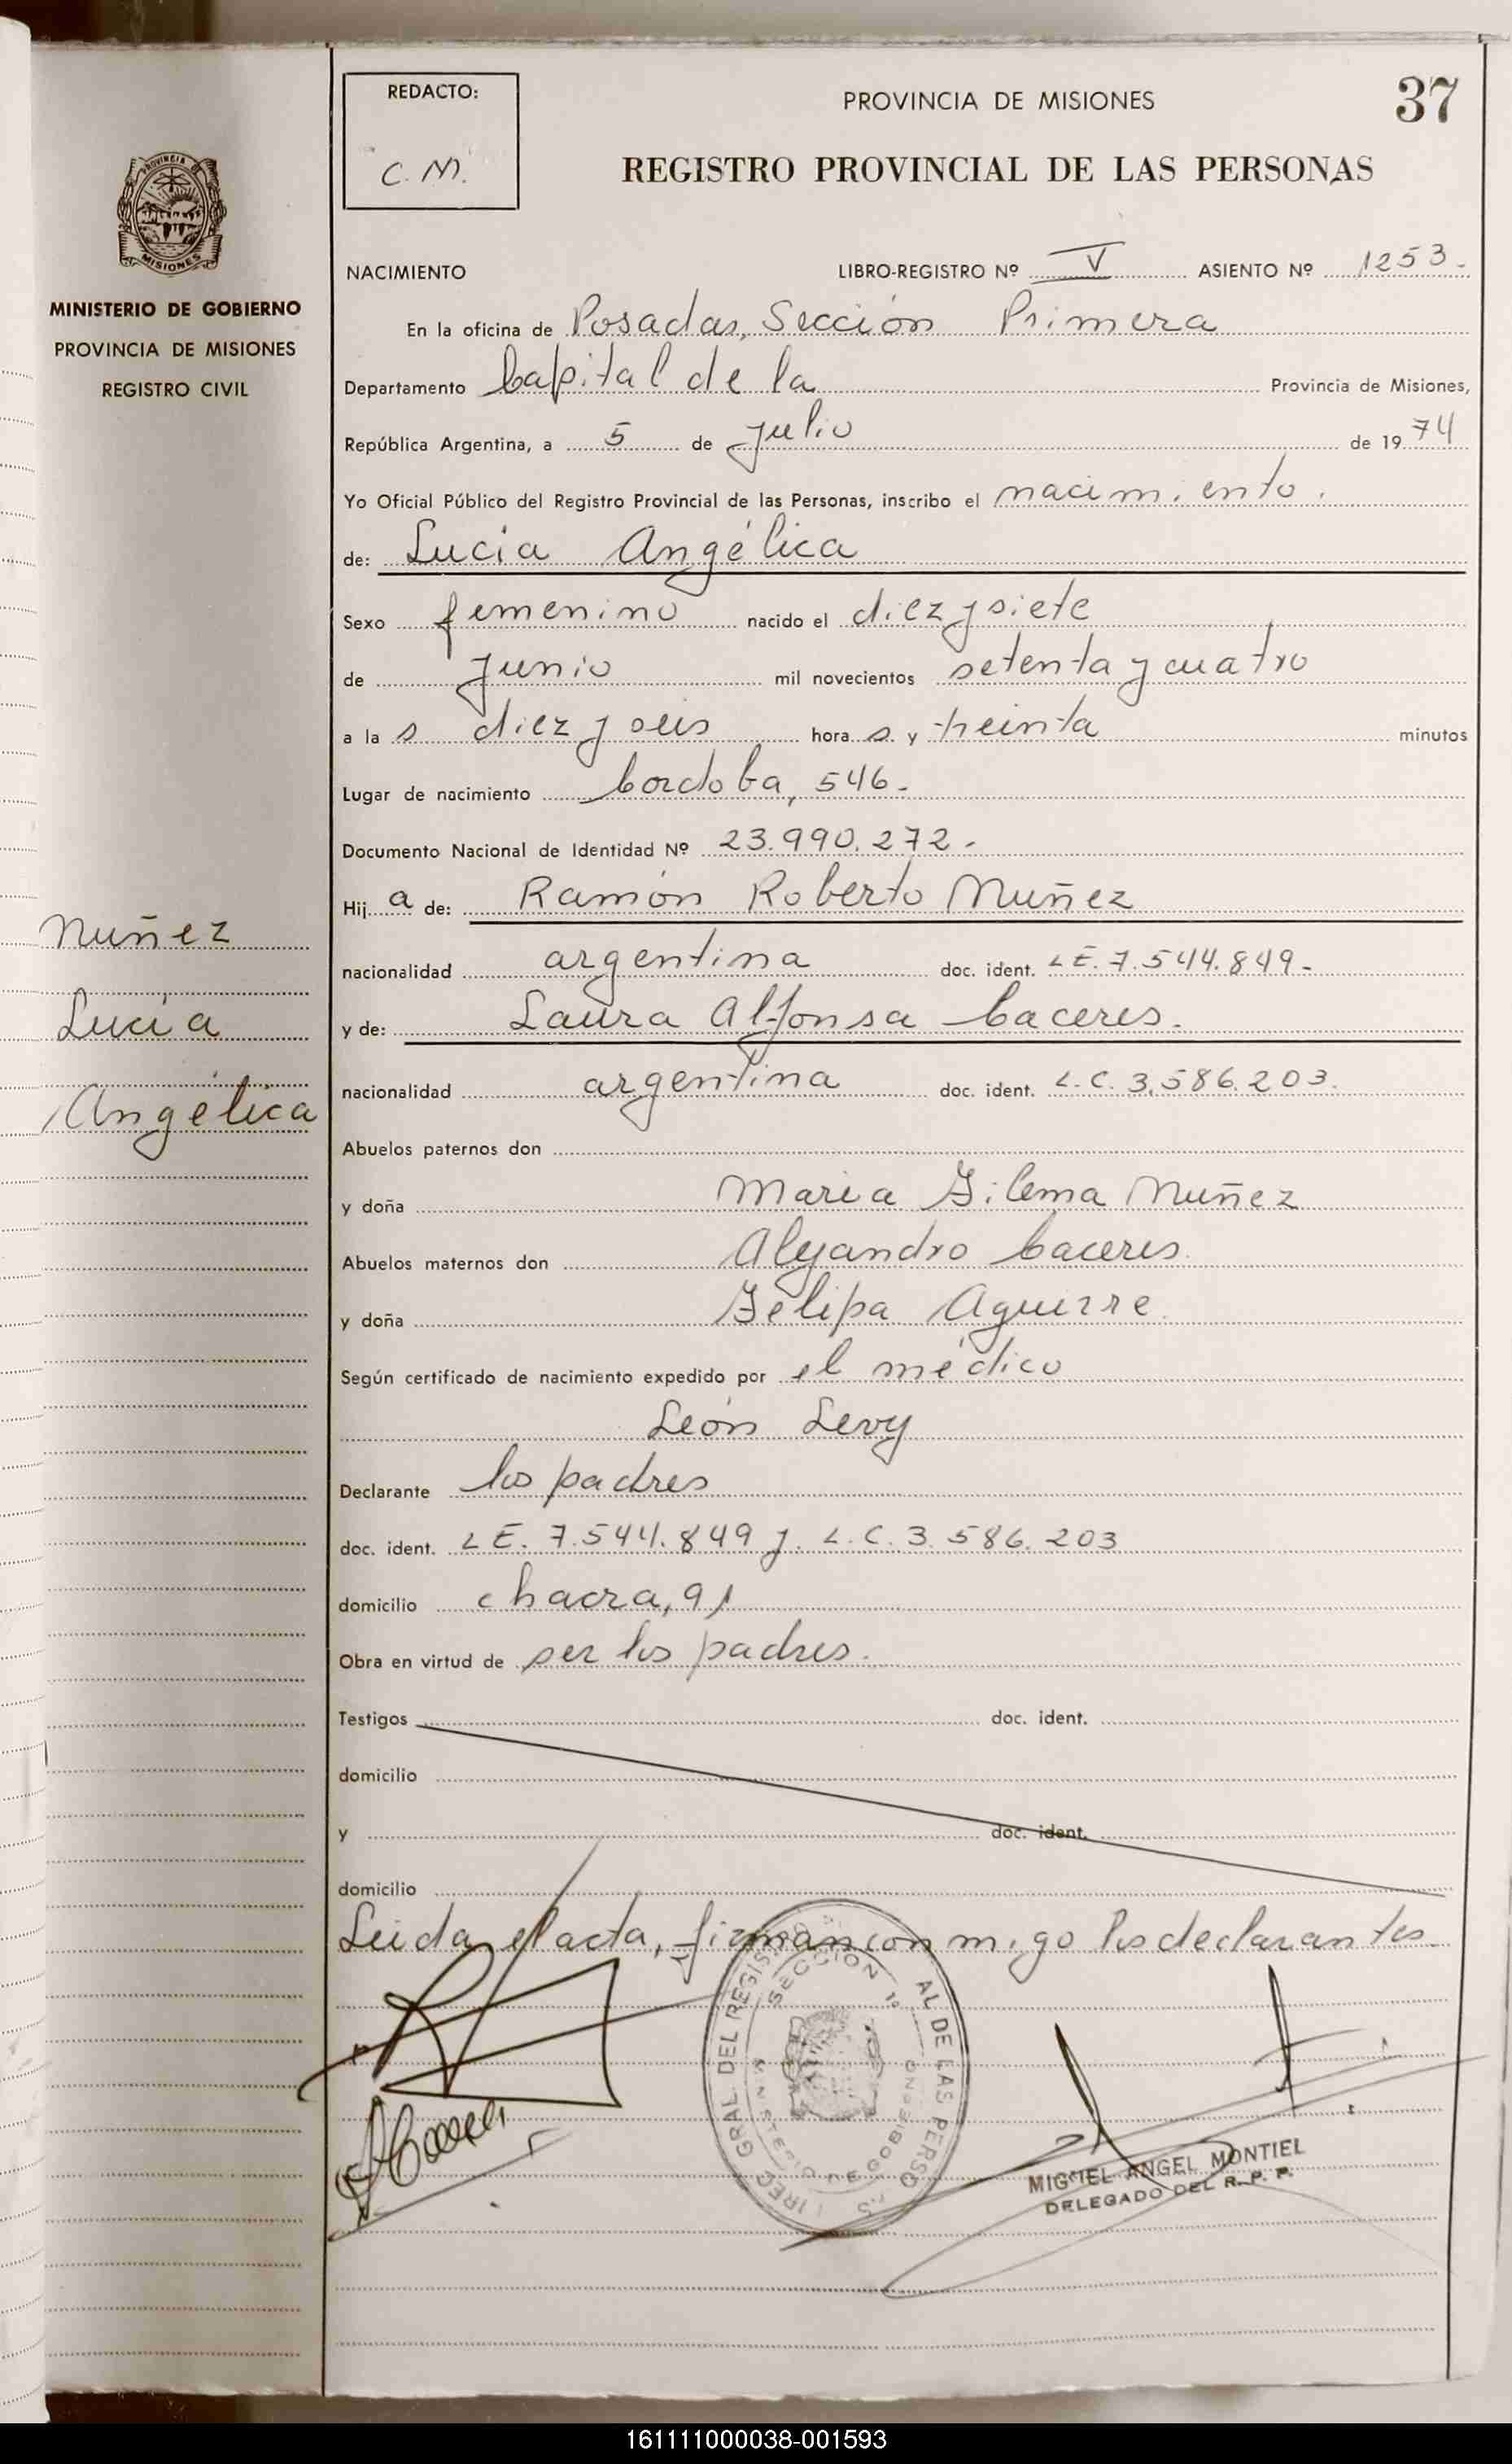 REDACTO:
C. M.
PROVINCIA DE MISIONES
37
REGISTRO PROVINCIAL DE LAS PERSONAS
PROVINCIA DE
MISIONES
MINISTERIO DE GOBIERNO
PROVINCIA DE MISIONES
REGISTRO CIVIL
NACIMIENTO LIBRO-REGISTRO Nº V ASIENTO Nº 1253-
En la oficina de Posadas, Sección Primera
Departamento Capital de la Provincia de Misiones,
República Argentina, a 5 de Julio de 1974
Yo Oficial Público del Registro Provincial de las Personas, inscribo el nacimiento.
de: Lucia Angélica
Sexo femenino nacido el diez y siete
de Junio mil novecientos setenta y cuatro
a la s diez y seis hora s y treinta minutos
Lugar de nacimiento Cordoba, 546-
Documento Nacional de Identidad Nº 23.990.272-
Hij a de: Ramón Roberto Nuñez
nacionalidad argentina doc. ident. L E. 7.544.849-
y de: Laura Alfonsa Caceres.
nacionalidad argentina doc. ident. L. C. 3.586.203.
Nuñez
Lucía
Angélica
Abuelos paternos don
y doña Maria Filema Nuñez
Abuelos maternos don Alejandro Caceres.
y doña Felipa Aguirre.
Según certificado de nacimiento expedido por el médico
León Levy
Declarante los padres
doc. ident. L E. 7.544.849 y. L. C. 3.586.203
domicilio chacra, 91
Obra en virtud de ser los padres.
Testigos doc. ident.
domicilio
y doc. ident.
domicilio
Leida el acta, firman conmigo los declarantes
GRAL. DEL REGIS AL DE LAS PERSO
SECCION 1º
MINISTERIO DE GOBIERNO
MIGUEL ANGEL MONTIEL
DELEGADO DEL R. P. P.
161111000038-001593